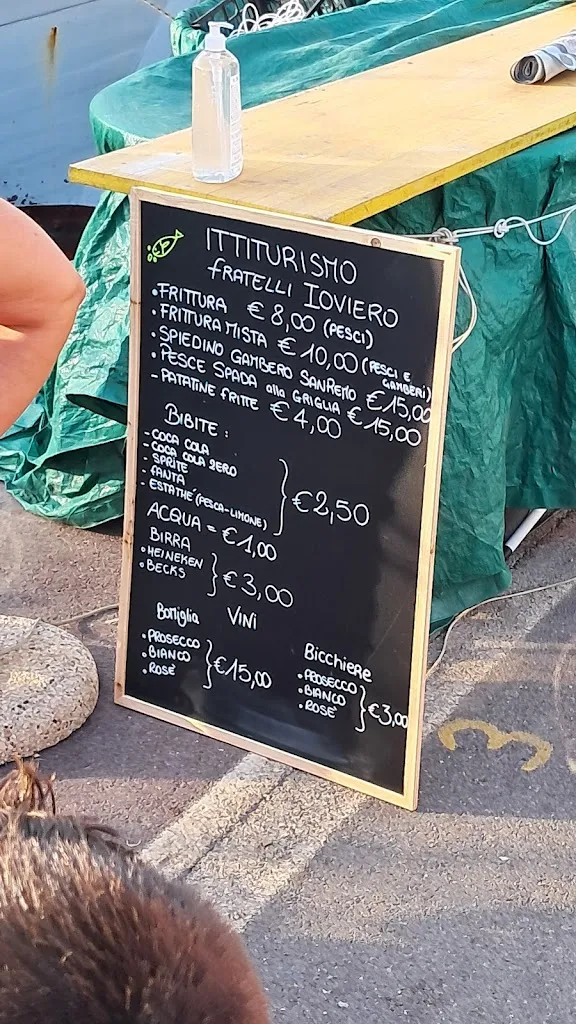 ITTITURISMO
FRATELLI IOVIERO
• FRITTURA € 8,00 (PESCI)
• FRITTURA MISTA € 10,00 (PESCI E GAMBERI)
• SPIEDINO GAMBERO SANREMO € 15,00
• PESCE SPADA alla GRIGLIA € 15,00
- PATATINE FRITTE € 4,00
BIBITE :
- COCA COLA
- COCA COLA ZERO
- SPRITE
- FANTA
- ESTATHE (PESCA-LIMONE)
€ 2,50
ACQUA = € 1,00
BIRRA
• HEINEKEN
• BECKS
€ 3,00
VINI
Bottiglia
• PROSECCO
• BIANCO
• ROSE'
€ 15,00
Bicchiere
• PROSECCO
• BIANCO
• ROSE'
€ 3,00